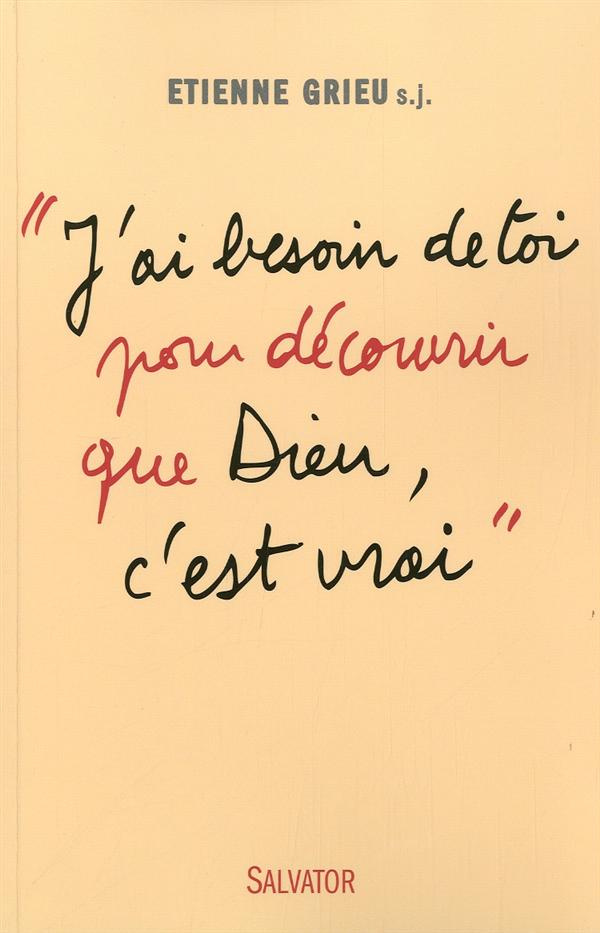 ETIENNE GRIEU s.j.
"J'ai besoin de toi
pour découvrir
que Dieu,
c'est vrai"
SALVATOR